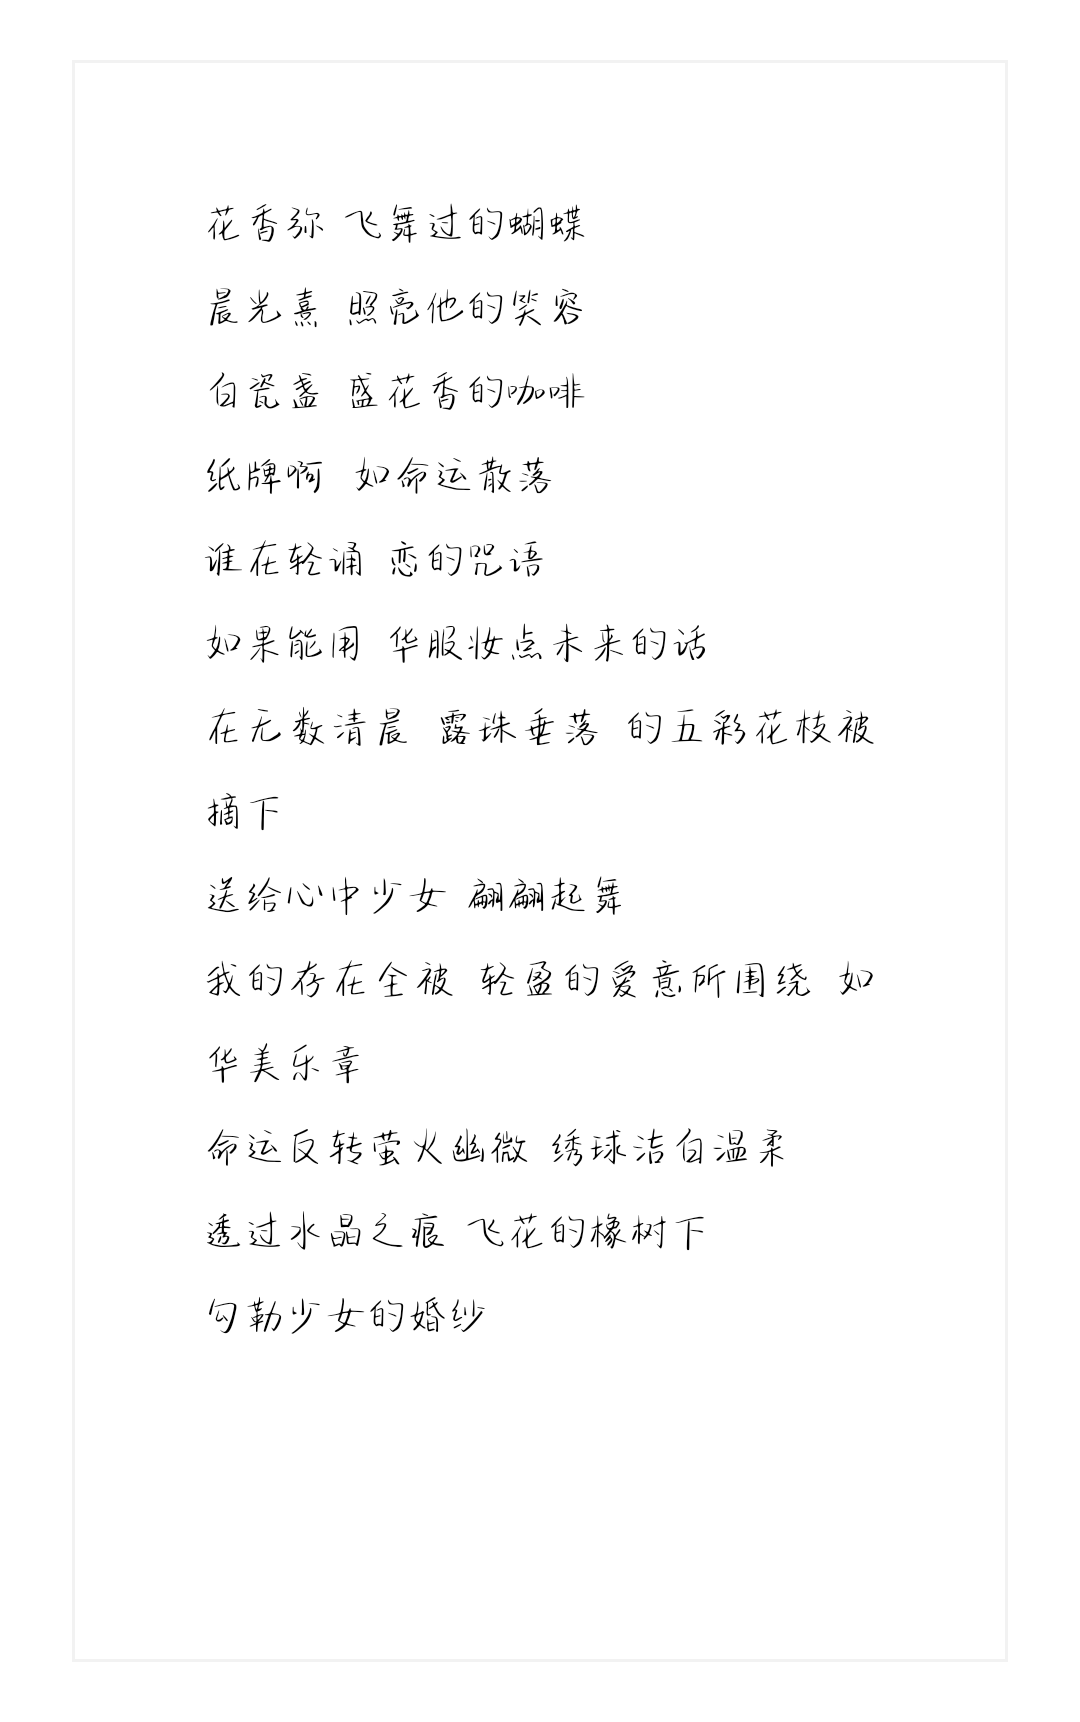 花香弥 飞舞过的蝴蝶
晨光熹 照亮他的笑容
白瓷盏 盛花香的咖啡
纸牌啊 如命运散落
谁在轻诵 恋的咒语
如果能用 华服妆点未来的话
在无数清晨 露珠垂落 的五彩花枝被
摘下
送给心中少女 翩翩起舞
我的存在全被 轻盈的爱意所围绕 如
华美乐章
命运反转萤火幽微 绣球洁白温柔
透过水晶之痕 飞花的橡树下
勾勒少女的婚纱